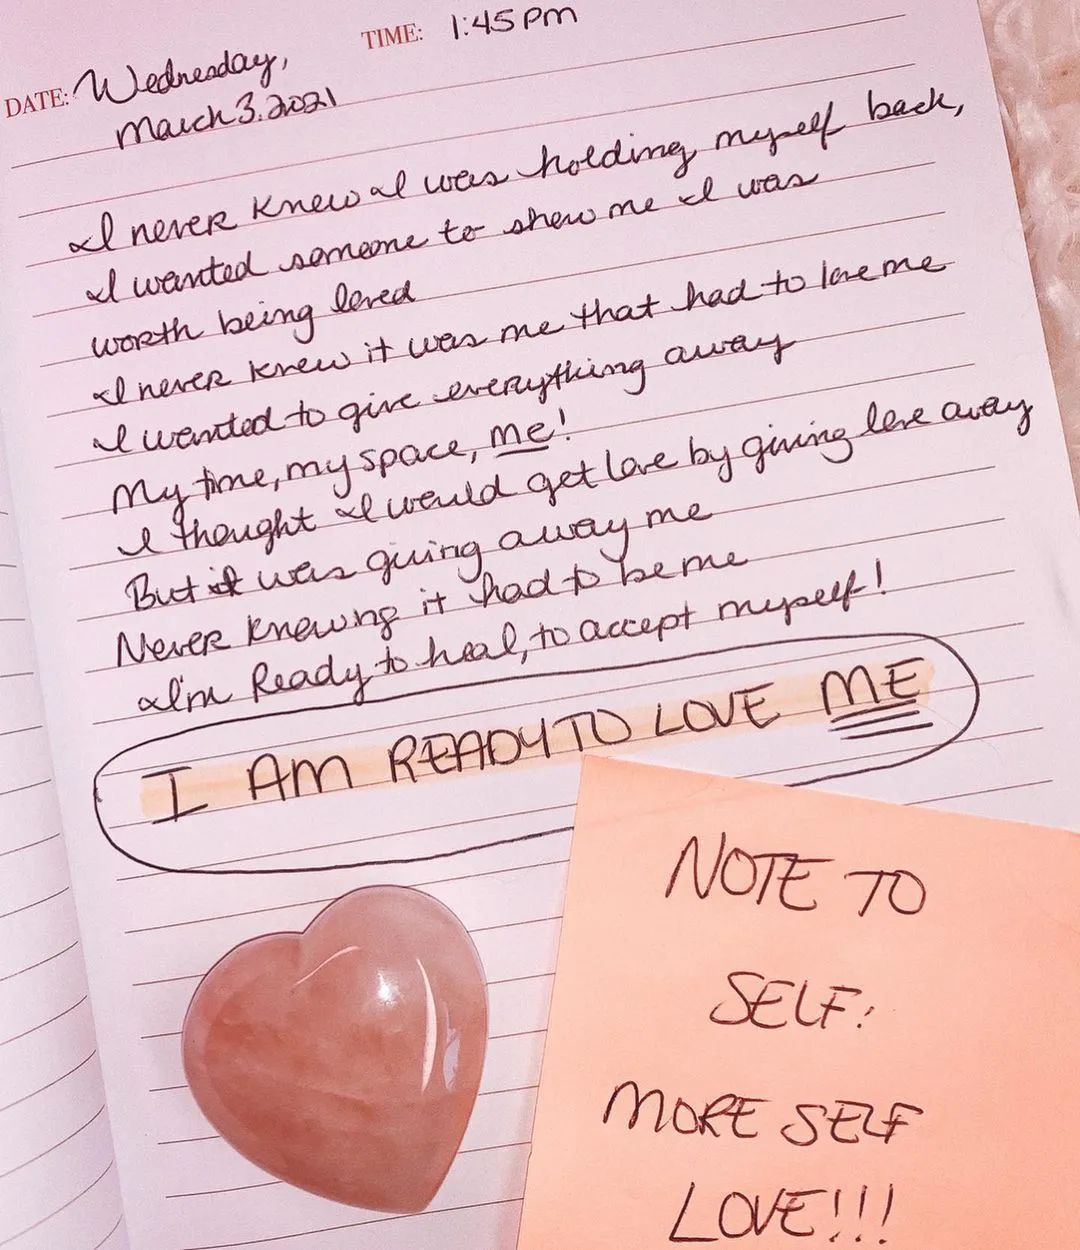 DATE: Wednesday, TIME: 1:45pm
March 3. 2021
I never knew I was holding myself back,
I wanted someone to show me I was
worth being loved
I never knew it was me that had to love me
I wanted to give everything away
My time, my space, me!
I thought I would get love by giving love away
But it was giving away me
Never knowing it had to be me
I'm Ready to heal, to accept myself!
I AM READY TO LOVE ME
NOTE TO
SELF:
MORE SELF
LOVE!!!